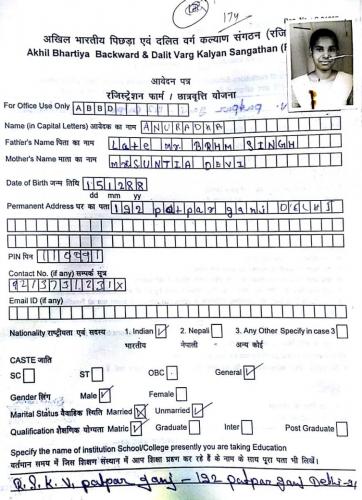 174
अखिल भारतीय पिछड़ा एवं दलित वर्ग कल्याण संगठन (रजि
Akhil Bhartiya Backward & Dalit Varg Kalyan Sangathan (
आवेदन पत्र
रजिस्ट्रेशन फार्म / छात्रवृत्ति योजना
For Office Use Only A B B D
Name (in Capital Letters) आवेदक का नाम ANURADHA
Father's Name पिता का नाम Late mr BRHM SINGH
Mother's Name माता का नाम mrs SUNTIA DEVI
Date of Birth जन्म तिथि 151288
dd mm yy
Permanent Address घर का पता 192 patpar ganj DELHI
PIN पिन 110091
Contact No. (if any) सम्पर्क सूत्र
921373123 X
Email ID (if any)
Nationality राष्ट्रीयता एवं सदस्य 1. Indian 2. Nepali 3. Any Other Specify in case 3
भारतीय नेपाली अन्य कोई
CASTE जाति
SC ST OBC General
Gender लिंग Male Female
Marital Status वैवाहिक स्थिति Married Unmarried
Qualification शैक्षणिक योग्यता Matric Graduate Inter Post Graduate
Specify the name of institution School/College presently you are taking Education
वर्तमान समय में जिस शिक्षण संस्थान में आप शिक्षा ग्रहण कर रहे हैं के नाम के साथ पूरा पता भी लिखें।
R.S.K.V. patpar ganj - 192 patpar ganj Delhi-91